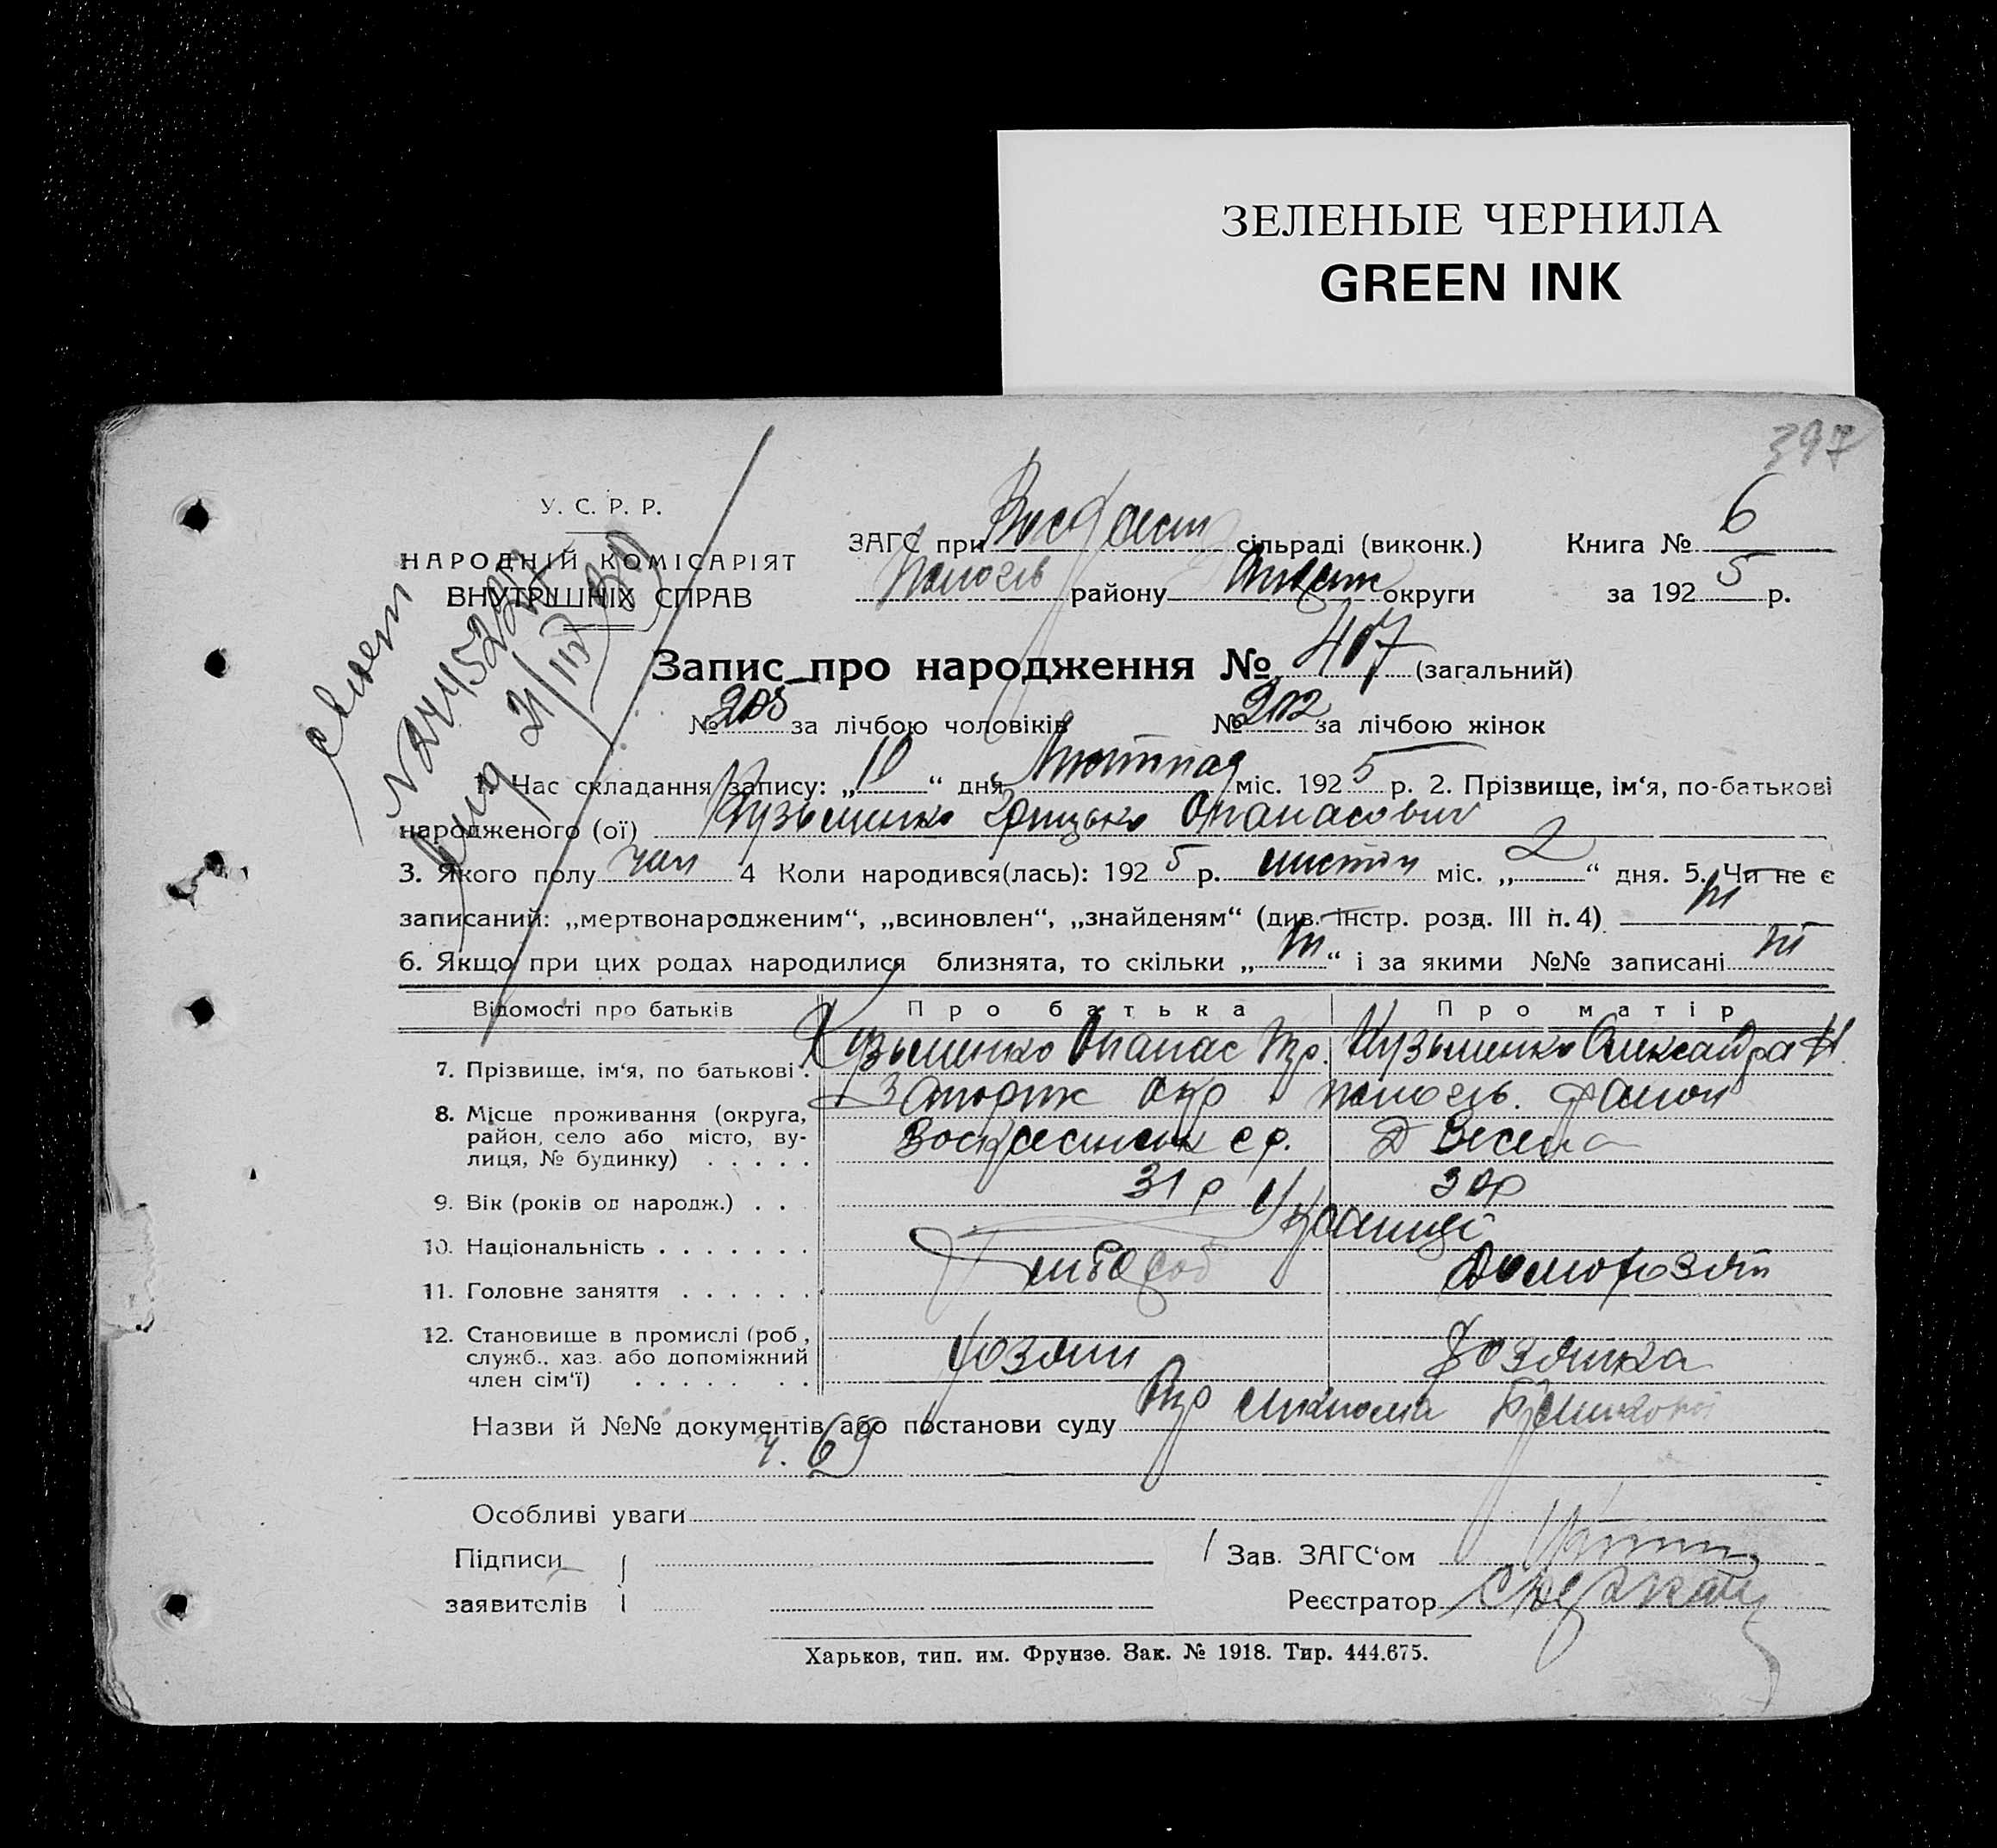 ЗЕЛЕНЫЕ ЧЕРНИЛА
GREEN INK
397
У. С. Р. Р.
НАРОДНІЙ КОМІСАРІЯТ
ВНУТРІШНІХ СПРАВ
ЗАГС при сільраді (виконк.) Книга № 6
району округи за 1925 р.
Запис про народження № 407 (загальний)
№ 205 за лічбою чоловіків № 202 за лічбою жінок
1. Час складання запису: „10“ дня міс. 1925 р. 2. Прізвище, ім‘я, по-батькові
народженого (ої) Кузьменко Грицько Опанасович
3. Якого полу чол 4 Коли народився(лась): 1925 р. листоп міс. „2“ дня. 5. Чи не є
записаний: „мертвонародженим“, „всиновлен“, „знайденям“ (див. інстр. розд. III п. 4) ні
6. Якщо при цих родах народилися близнята, то скільки „ні“ і за якими №№ записані ні
Відомості про батьків Про батька Про матір
7. Прізвище, ім‘я, по батькові . Кузьменко Опанас Гр. Кузьменко Олександра Н.
8. Місце проживання (округа, район, село або місто, вулиця, № будинку) . . . . . Запоріж окр пологів. район
Воскресенськ с р. Д Весела
9. Вік (років од народж.) . . 31 р 30р
10. Національність . . . . . . . Українці
11. Головне заняття . . . . . . Хлібороб Домохозяй
12. Становище в промислі (роб., служб., хаз. або допоміжний член сім‘ї) . . . . . . . хозяин хозяйка
Назви й №№ документів або постанови суду
ч. 69
Особливі уваги
Підписи Зав. ЗАГС‘ом
заявителів Реєстратор
Харьков, тип. им. Фрунзе. Зак. № 1918. Тир. 444.675.